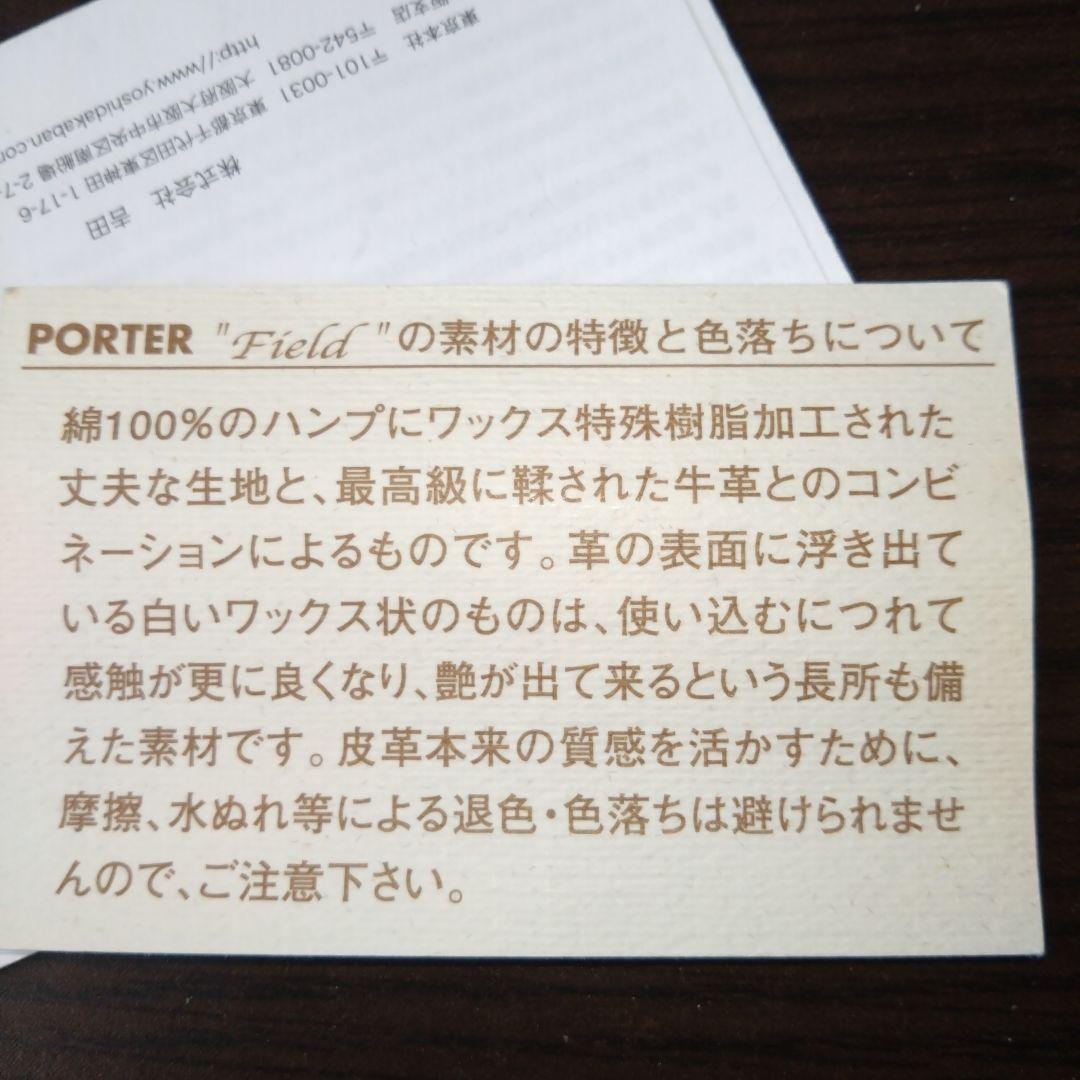 PORTER "Field"の素材の特徴と色落ちについて
綿100%のハンプにワックス特殊樹脂加工された
丈夫な生地と、最高級に鞣された牛革とのコンビ
ネーションによるものです。革の表面に浮き出て
いる白いワックス状のものは、使い込むにつれて
感触が更に良くなり、艶が出て来るという長所も備
えた素材です。皮革本来の質感を活かすために、
摩擦、水ぬれ等による退色・色落ちは避けられませ
んので、ご注意下さい。
株式会社 吉田
東京本社 〒101-0031 東京都千代田区東神田 1-17-6
阪支店 〒542-0081 大阪府大阪市中央区南船場 2-7-
http://www.yoshidakaban.com